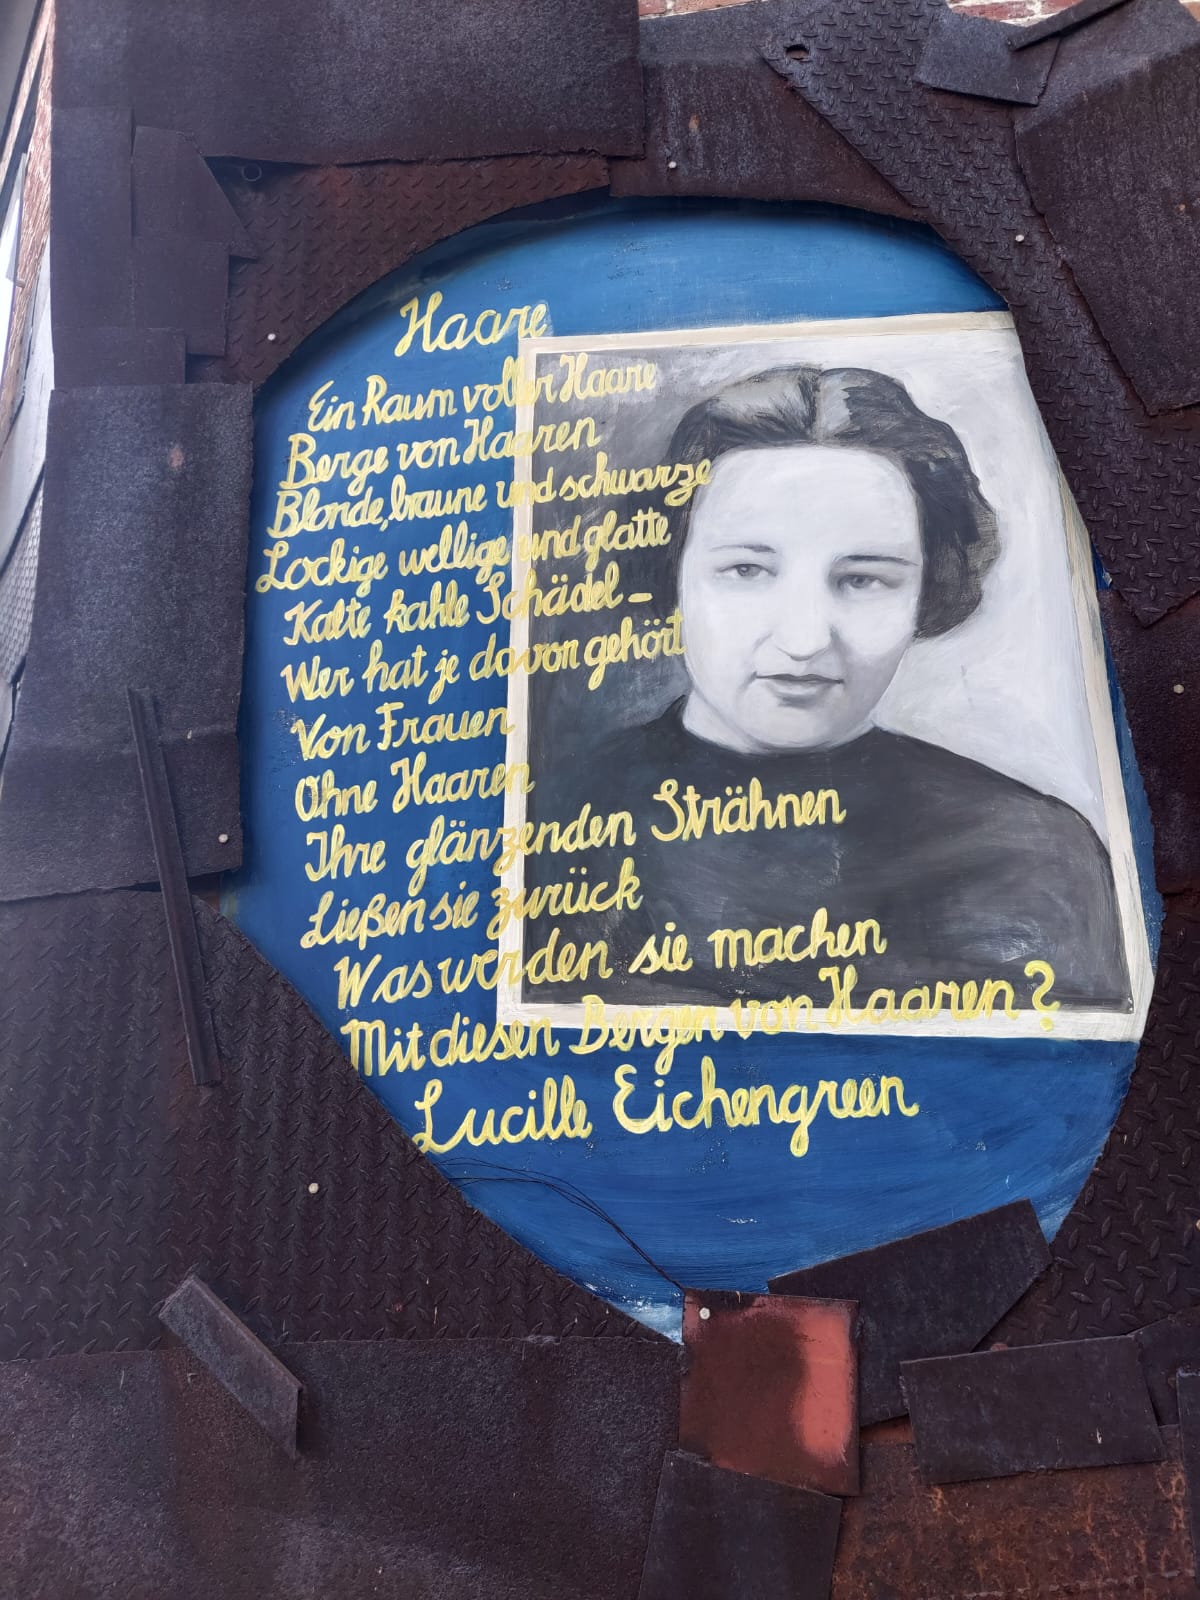 Haare
Ein Raum voller Haare
Berge von Haaren
Blonde, braune und schwarze
Lockige wellige und glatte
Kalte kahle Schädel –
Wer hat je davon gehört
Von Frauen
Ohne Haaren
Ihre glänzenden Strähnen
Ließen sie zurück
Was werden sie machen
Mit diesen Bergen von Haaren?
Lucille Eichengreen